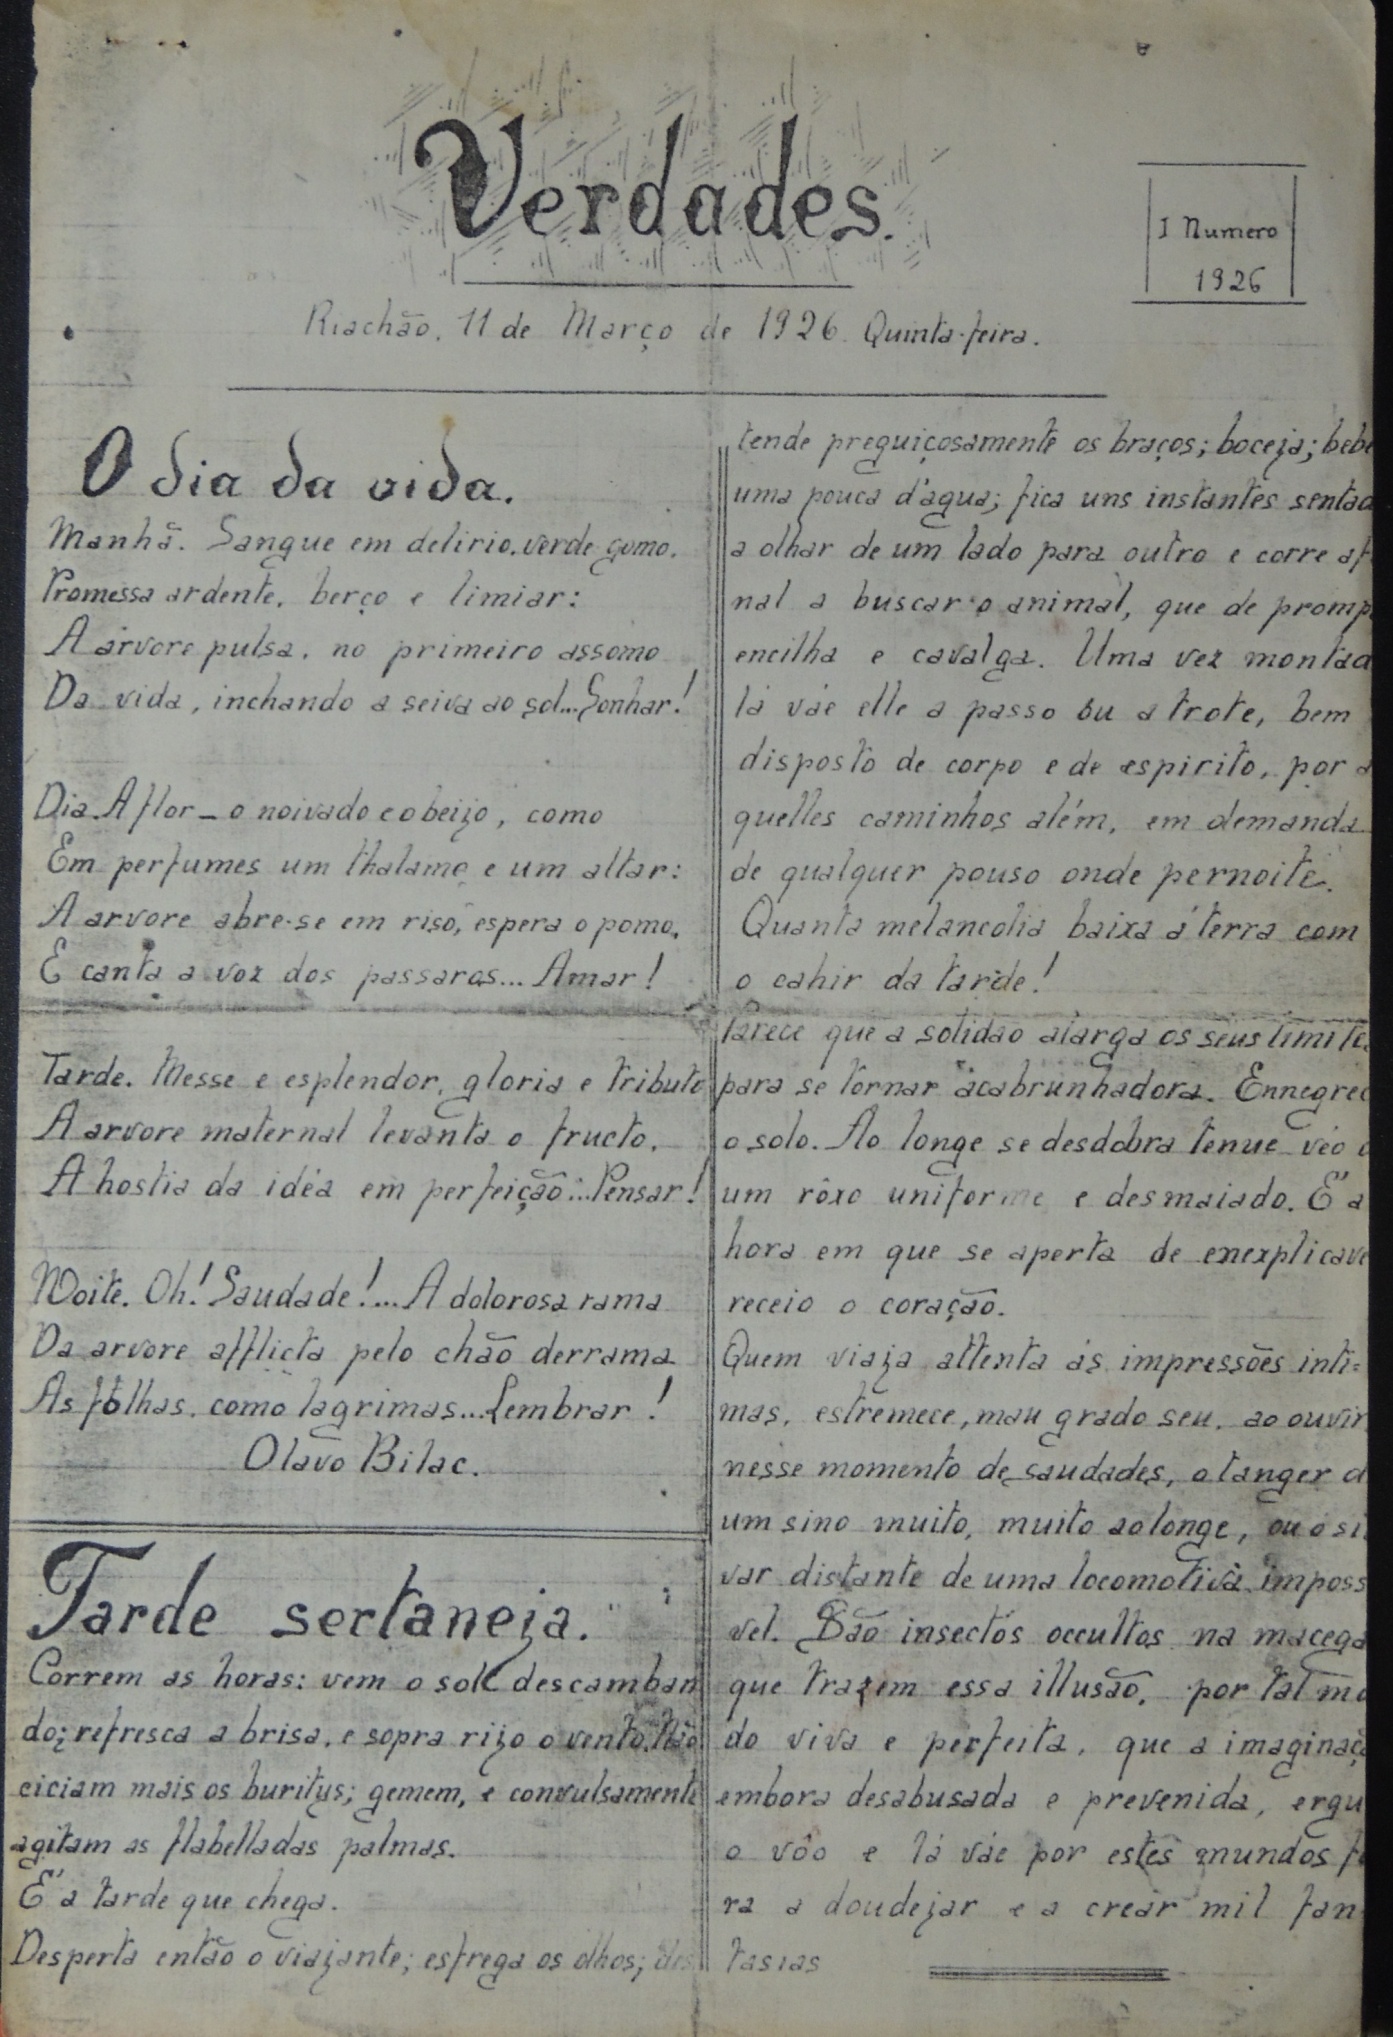 Verdades.
I Numero
1926
Riachão, 11 de Março de 1926. Quinta-feira.
O dia da vida.
Manhã. Sangue em delirio, verde gomo,
Promessa ardente, berço e limiar:
A árvore pulsa, no primeiro assomo
Da vida, inchando a seiva ao sol... Sonhar!
Dia. A flor _ o noivado e o beijo, como
Em perfumes um thalamo e um altar:
A arvore abre-se em riso, espera o pomo,
E canta a voz dos passaros... Amar!
Tarde. Messe e esplendor, gloria e tributo
A arvore maternal levanta o fructo,
A hostia da idéa em perfeição... Pensar!
Noite. Oh! Saudade!... A dolorosa rama
Da arvore afflicta pelo chão derrama
As folhas, como lagrimas... Lembrar!
Olavo Bilac.
Tarde sertaneja.
Correm as horas: vem o sol descamban
do; refresca a brisa, e sopra rijo o vento. Não
ciciam mais os buritys; gemem, e convulsamente
agitam as flabelladas palmas.
E' a tarde que chega.
Desperta então o viajante; esfrega os olhos; des
tende preguiçosamente os braços; boceja; bebe
uma pouca d'agua; fica uns instantes sentad
a olhar de um lado para outro e corre af
nal a buscar o animal, que de promp
encilha e cavalga. Uma vez montad
lá váe elle a passo ou a trote, bem
disposto de corpo e de espirito, por a
quelles caminhos além, em demanda
de qualquer pouso onde pernoite.
Quanta melancolia baixa á terra com
o cahir da tarde!
Parece que a solidão alarga os seus limite
para se tornar acabrunhadora. Ennegrec
o solo. Ao longe se desdobra tenue véo d
um rôxo uniforme e desmaiado. E' a
hora em que se aperta de enexplicave
receio o coração.
Quem viaja attenta ás impressões inti=
mas, estremece, mau grado seu, ao ouvir
nesse momento de saudades, o tanger d
um sino muito, muito ao longe, ou o si
var distante de uma locomotiva imposs
vel. São insectos occultos na macega
que trazem essa illusão, por tal mo
do viva e perfeita, que a imaginaçã
embora desabusada e prevenida, ergu
o vôo e lá váe por estes mundos fo
ra a doudejar e a crear mil fan
tasias